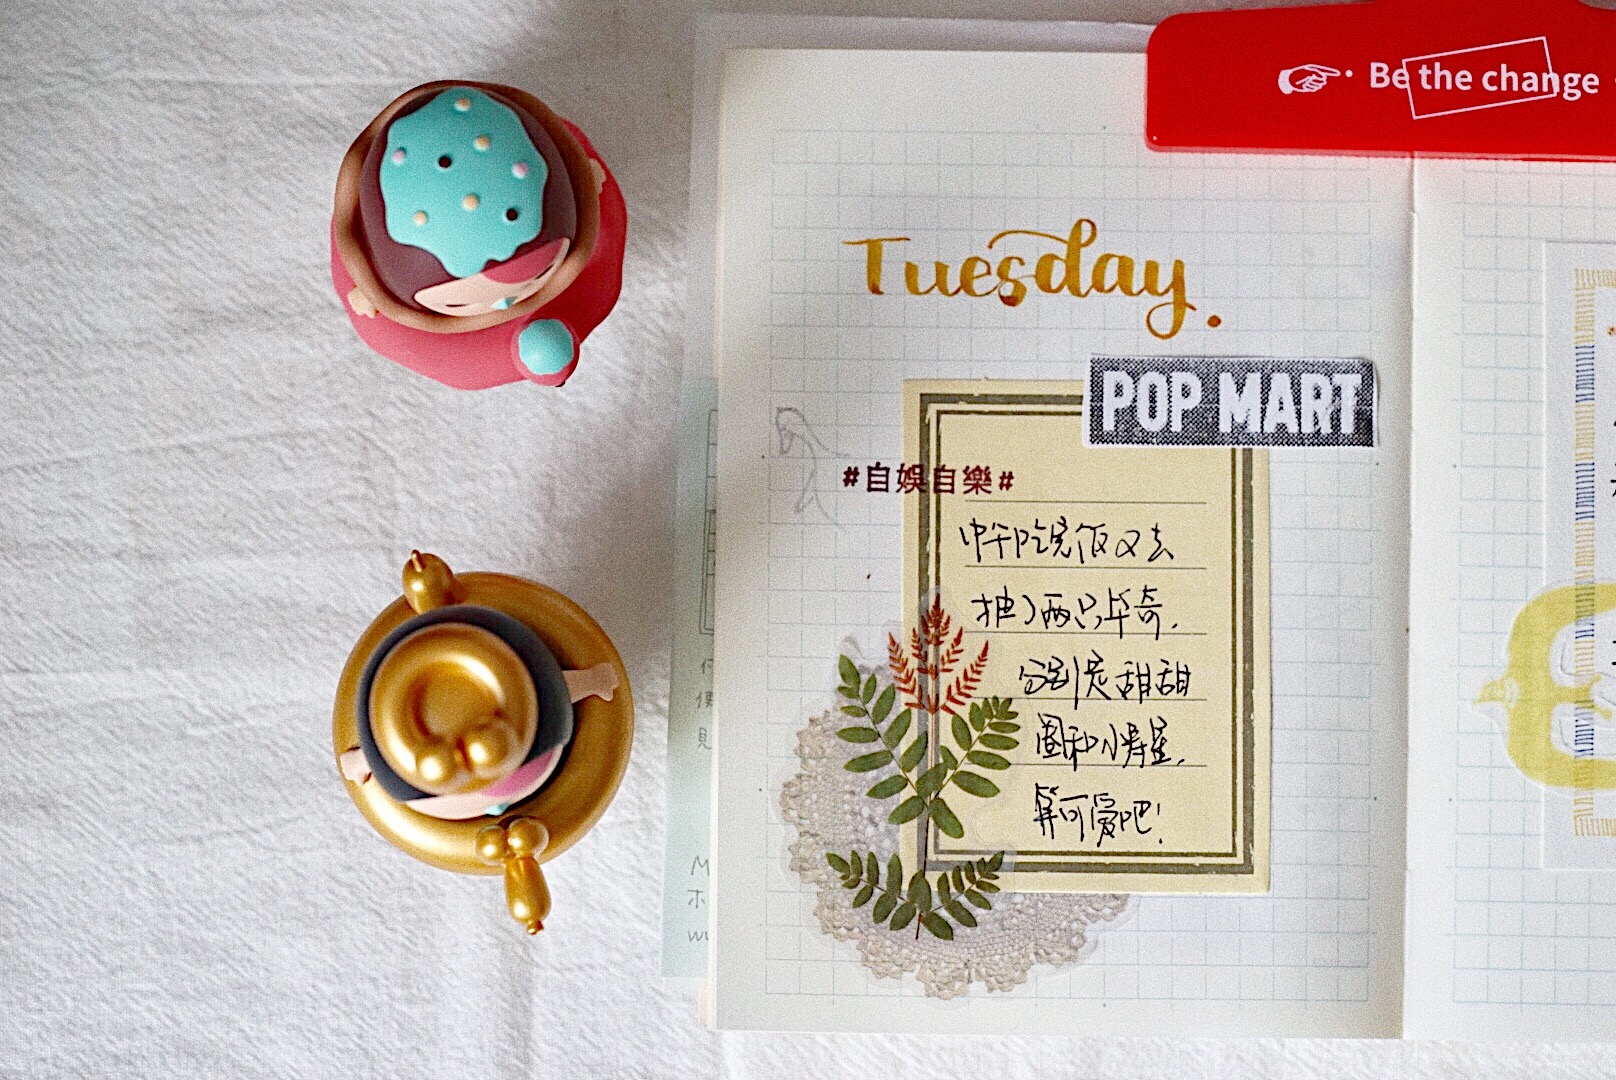 Be the change
Tuesday.
POP MART
#自娛自樂#
中午吃完饭又去
抽了两只毕奇.
分别是甜甜
圈和小寿星.
算可爱吧!